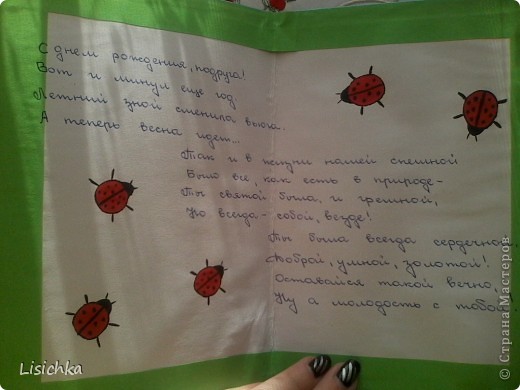 С днем рождения, подруга!
Вот и минул еще год.
Летний зной сменила вьюга.
А теперь весна идет...
Так и в жизни нашей спешной
Было все, как есть в природе-
Ты святой была, и грешной,
Но всегда - собой, везде!
Ты была всегда сердечной
Доброй, умной, золотой!
Оставайся такой вечно,
Ну а молодость с тобой
Lisichka
© Страна Мастеров